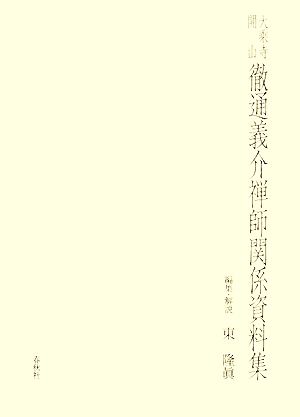 大乘寺
開山
徹通義介禅師関係資料集
編集・解説 東 隆眞
春秋社